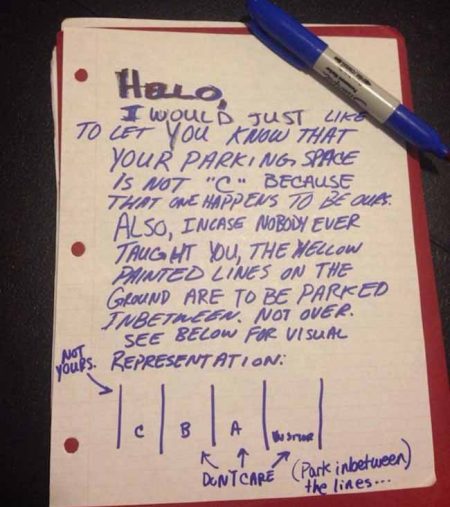 HELLO,
I WOULD JUST LIKE
TO LET YOU KNOW THAT
YOUR PARKING SPACE
IS NOT "C" BECAUSE
THAT ONE HAPPENS TO BE OURS.
ALSO, INCASE NOBODY EVER
TAUGHT YOU, THE YELLOW
PAINTED LINES ON THE
GROUND ARE TO BE PARKED
INBETWEEN. NOT OVER.
SEE BELOW FOR VISUAL
REPRESENTATION:
NOT
YOURS.
C B A
DONT CARE
(Park inbetween)
the lines...